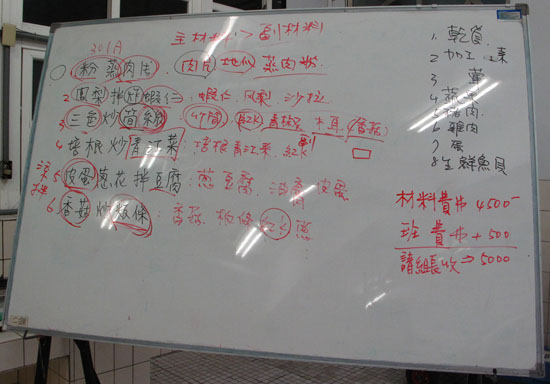 201A
主材料 > 副材料
1. 粉蒸肉片: 肉片 地瓜 蒸肉粉
2. 鳳梨拌 蝦仁: 蝦仁、鳳梨、沙拉
3 三色炒筍絲: 筍 紅K 青椒 木耳 (香菇)
4 培根炒青江菜: 培根 青江菜、紅K
副
涼拌
5. 皮蛋蔥花拌豆腐: 蔥 豆腐、 皮蛋
6. 香菇炒粄條: 香菇、粄條 紅K 蔥
1. 乾貨
2 加工 素
3 葷
4 蔬果
5 豬肉
6 雞肉
7 蛋
8 生鮮魚貝
材料費 $4500-
班費 $ + 500
請組長收 ⇒ 5000